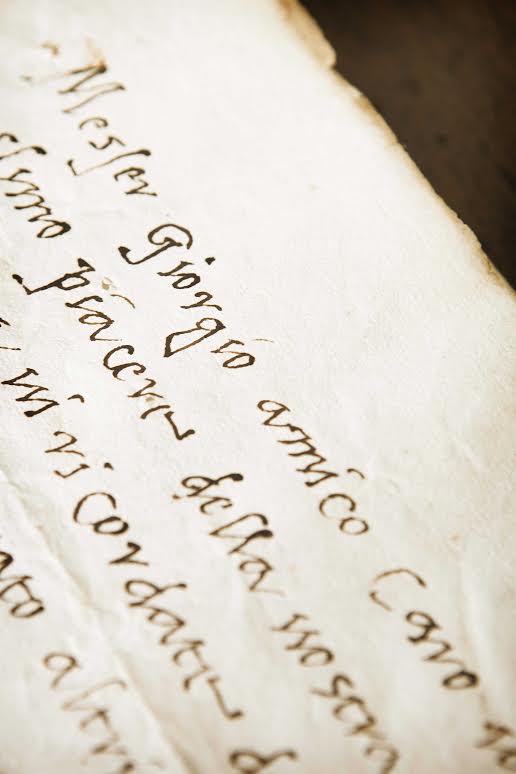 Messer Giorgio amico Caro
simo piacere della nostra
mi ricordate
ato altri